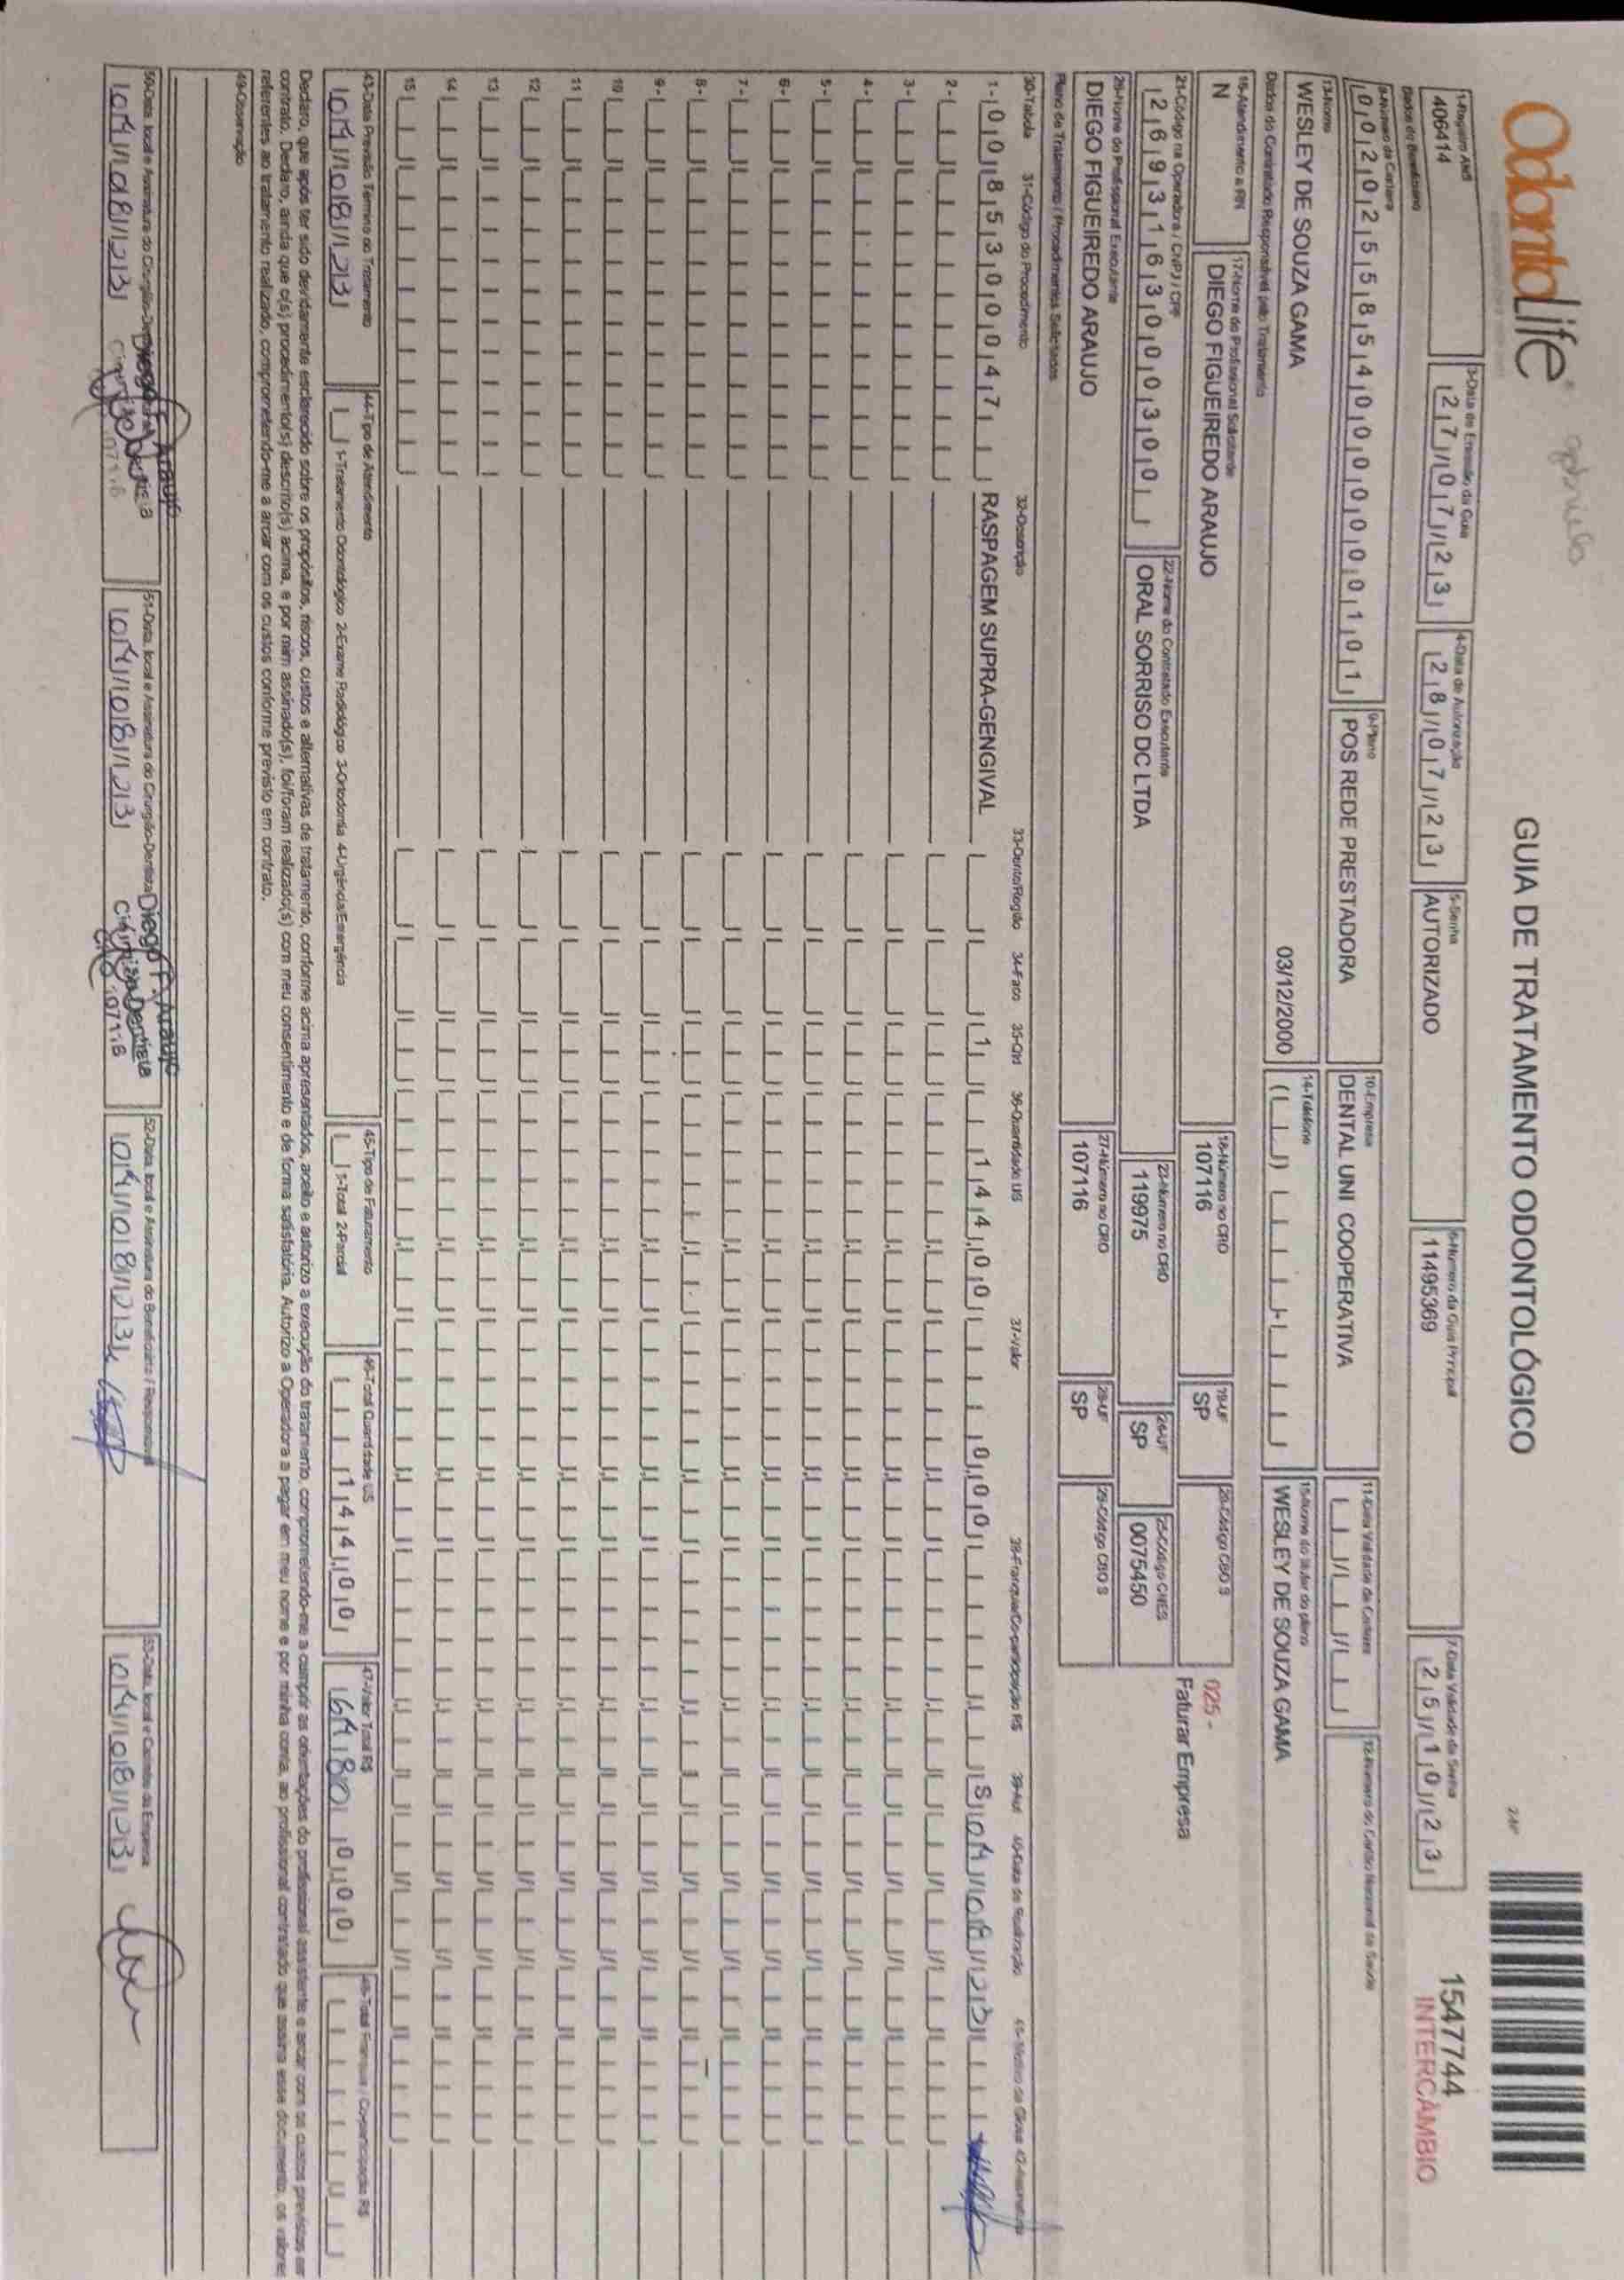 OdontoLife
GUIA DE TRATAMENTO ODONTOLÓGICO
1547744
INTERCÂMBIO
1-Registro ANS
406414
3-Data de Emissão da Guia
27/07/23
4-Data de Autorização
28/07/23
5-Senha
AUTORIZADO
6-Número da Guia Principal
11495369
7-Data Validade da Senha
25/10/23
Dados do Beneficiário
8-Número da Carteira
00202558540000000101
9-Plano
POS REDE PRESTADORA
10-Empresa
DENTAL UNI COOPERATIVA
11-Data Validade da Carteira
12-Número do Cartão Nacional de Saúde
13-Nome
WESLEY DE SOUZA GAMA
03/12/2000
14-Telefone
15-Nome do titular do plano
WESLEY DE SOUZA GAMA
Dados do Contratado Responsável pelo Tratamento
16-Atendimento a RN
N
17-Nome do Profissional Solicitante
DIEGO FIGUEIREDO ARAUJO
18-Número no CRO
107116
19-UF
SP
20-Código CBO S
025 -
Faturar Empresa
21-Código na Operadora / CNPJ / CPF
26931630000300
22-Nome do Contratado Executante
ORAL SORRISO DC LTDA
23-Número no CRO
119975
24-UF
SP
25-Código CNES
0075450
26-Nome do Profissional Executante
DIEGO FIGUEIREDO ARAUJO
27-Número no CRO
107116
28-UF
SP
29-Código CBO S
Plano de Tratamento / Procedimentos Solicitados
30-Tabela 31-Código do Procedimento 32-Descrição 33-Dente/Região 34-Face 35-Qtd 36-Quantidade US 37-Valor 38-Franquia/Co-participação R$ 39-Aut 40-Data de Realização 41-Motivo da Glosa 42-Assinatura
1- 00 85300047 RASPAGEM SUPRA-GENGIVAL 1 144,00 0,00 S 04/08/23
2-
3-
4-
5-
6-
7-
8-
9-
10
11
12
13
14
15
43-Data Previsão Término do Tratamento
04/08/23
44-Tipo de Atendimento
1-Tratamento Odontológico 2-Exame Radiológico 3-Ortodontia 4-Urgência/Emergência
45-Tipo de Faturamento
1-Total 2-Parcial
46-Total Quantidade US
144,00
47-Valor Total R$
0,00
48-Total Franquia / Co-participação R$
Declaro, que após ter sido devidamente esclarecido sobre os propósitos, riscos, custos e alternativas de tratamento, conforme acima apresentados, aceito e autorizo a execução do tratamento, comprometendo-me a cumprir as orientações do profissional assistente e arcar com os custos previstos em
contrato. Declaro, ainda que o(s) procedimento(s) descrito(s) acima, e por mim assinado(s), foi/foram realizado(s) com meu consentimento e de forma satisfatória. Autorizo a Operadora a pagar em meu nome e por minha conta, ao profissional contratado que assina esse documento, os valores
referentes ao tratamento realizado, comprometendo-me a arcar com os custos conforme previsto em contrato.
49-Observação
50-Data, local e Assinatura do Cirurgião-Dentista
04/08/23
51-Data, local e Assinatura do Cirurgião-Dentista
04/08/23
Diego F. Araujo
Cirurgião Dentista
52-Data, local e Assinatura do Beneficiário / Responsável
04/08/23
53-Data, local e Carimbo da Empresa
04/08/23